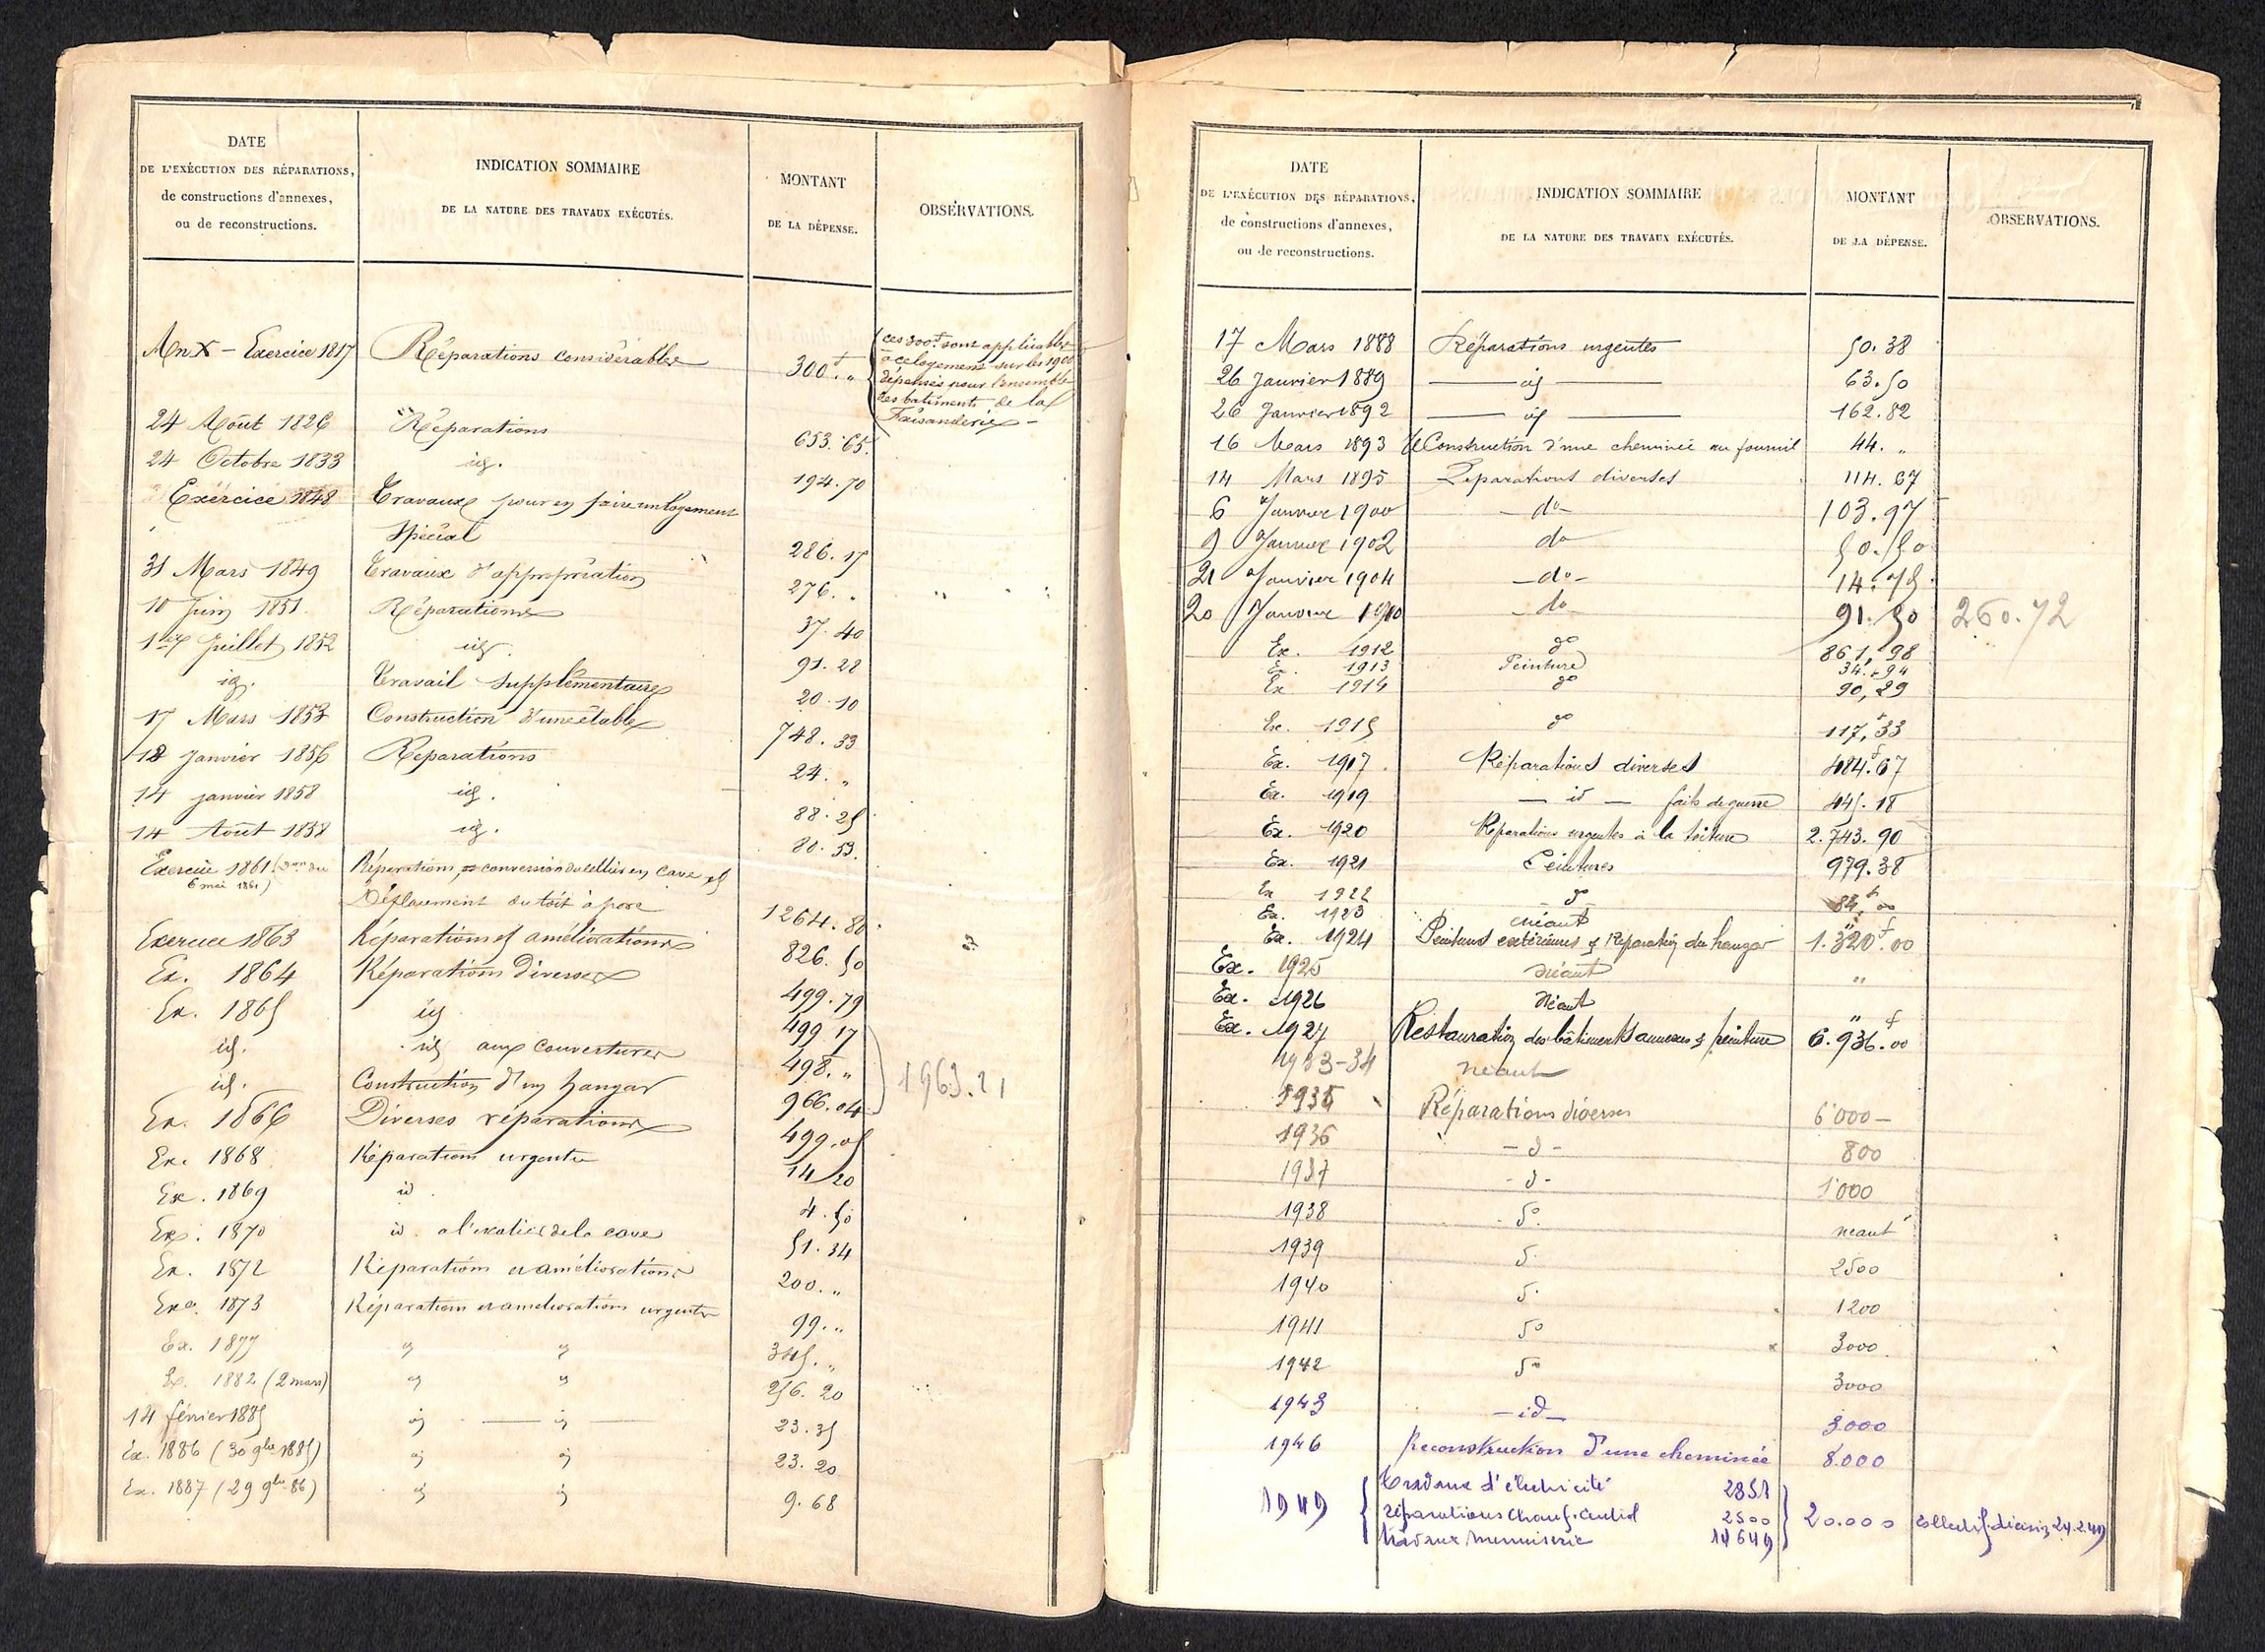 DATE
DE L'EXÉCUTION DES RÉPARATIONS,
de constructions d'annexes,
ou de reconstructions.
INDICATION SOMMAIRE
DE LA NATURE DES TRAVAUX EXÉCUTÉS.
MONTANT
DE LA DÉPENSE.
OBSERVATIONS.
An X – Exercice 1817 Réparations considérables 300f. „
(ces 300f. sont applicables
à ce logement sur les 1900
dépensés pour l'ensemble
des batiments de la
Faisanderie –
24 Août 1826 Réparations 653.65.
24 Octobre 1833 id. 194.70
Exércice 1848 Travaux pour en faire un logement
Spécial 286.17
31 Mars 1849 Travaux d'appropriation 276. „
10 Juin 1851. Réparations 37.40
1er Juillet 1852 id. 91.28
id. Travail Supplémentaire 20.10
17 Mars 1853 Construction d'une étable 748.33
12 Janvier 1856 Réparations 24. „
14 janvier 1858 id. 88.25
14 Août 1858 id. 80.53.
Exercice 1861 (Don du Réparations, conversion du cellier en cave et
6 mai 1861) Déplacement du toit à porc 1264.80.
Exercice 1863 Réparations et améliorations 826.50
Ex. 1864 Réparations Diverses 499.79
Ex. 1865 id 499.17
id. id aux couvertures 498. „
id. Construction d'un hangar 966.04 1963.21
Ex. 1866 Diverses réparations 499.05
Ex. 1868 Réparations urgentes 14.20
Ex. 1869 id. 4.50
Ex. 1870 id. a l'escalier de la cave 51.34
Ex. 1872 Réparations et améliorations 200. „
Exo. 1873 Réparations et améliorations urgentes 99. „
Ex. 1877 id id 345. „
Ex. 1882 (2 mars) id id 256.20
14 février 1885 id — id — 23.35
Ex. 1886 (30 9bre 1885) id id 23.20
Ex. 1887 (29 9bre 86) id id 9.68
DATE
DE L'EXÉCUTION DES RÉPARATIONS,
de constructions d'annexes,
ou de reconstructions.
INDICATION SOMMAIRE
DE LA NATURE DES TRAVAUX EXÉCUTÉS.
MONTANT
DE LA DÉPENSE.
OBSERVATIONS.
17 Mars 1888 Réparations urgentes 50.38
26 Janvier 1889 — id — 63.50
26 Janvier 1892 — id — 162.82
16 Mars 1893 Construction d'une cheminée au fournil 44. „
14 Mars 1895 Réparations diverses 114.67
6 Janvier 1900 – do – 103.97
9 Janvier 1902 do 50.50
21 Janvier 1904 – do – 14.75
20 Janvier 1910 – do 91.50 260.72
Ex. 1912 do 861,98
E. 1913 Peinture 34.94
Ex 1914 do 90,29
Ex. 1915 do 117,33
Ex. 1917 Réparations diverses 484f.67
Ex. 1919 — id — faits de guerre 445.18
Ex. 1920 Réparations urgentes à la toiture 2.743.90
Ex. 1921 Peintures 979.38
Ex 1922 do 84,f00
Ex. 1923 néant „
Ex. 1924 Peintures extérieures & Réparation du hangar 1.320f.00
Ex. 1925 néant „
Ex. 1926 Néant „
Ex. 1927 Restauration des bâtiments annexes & peinture 6.936f.00
1933-34 néant
1935 Réparations diverses 6'000 –
1936 – d – 800
1937 – d – 1'000
1938 do. néant
1939 d. 2500
1940 d. 1200
1941 do 3000
1942 do 3000
1943 – id – 3.000
1946 Reconstruction d'une cheminée 8.000
Travaux d'électricité 2851
1949 réparations chauf. central 2500 20.000
travaux menuiserie 14649